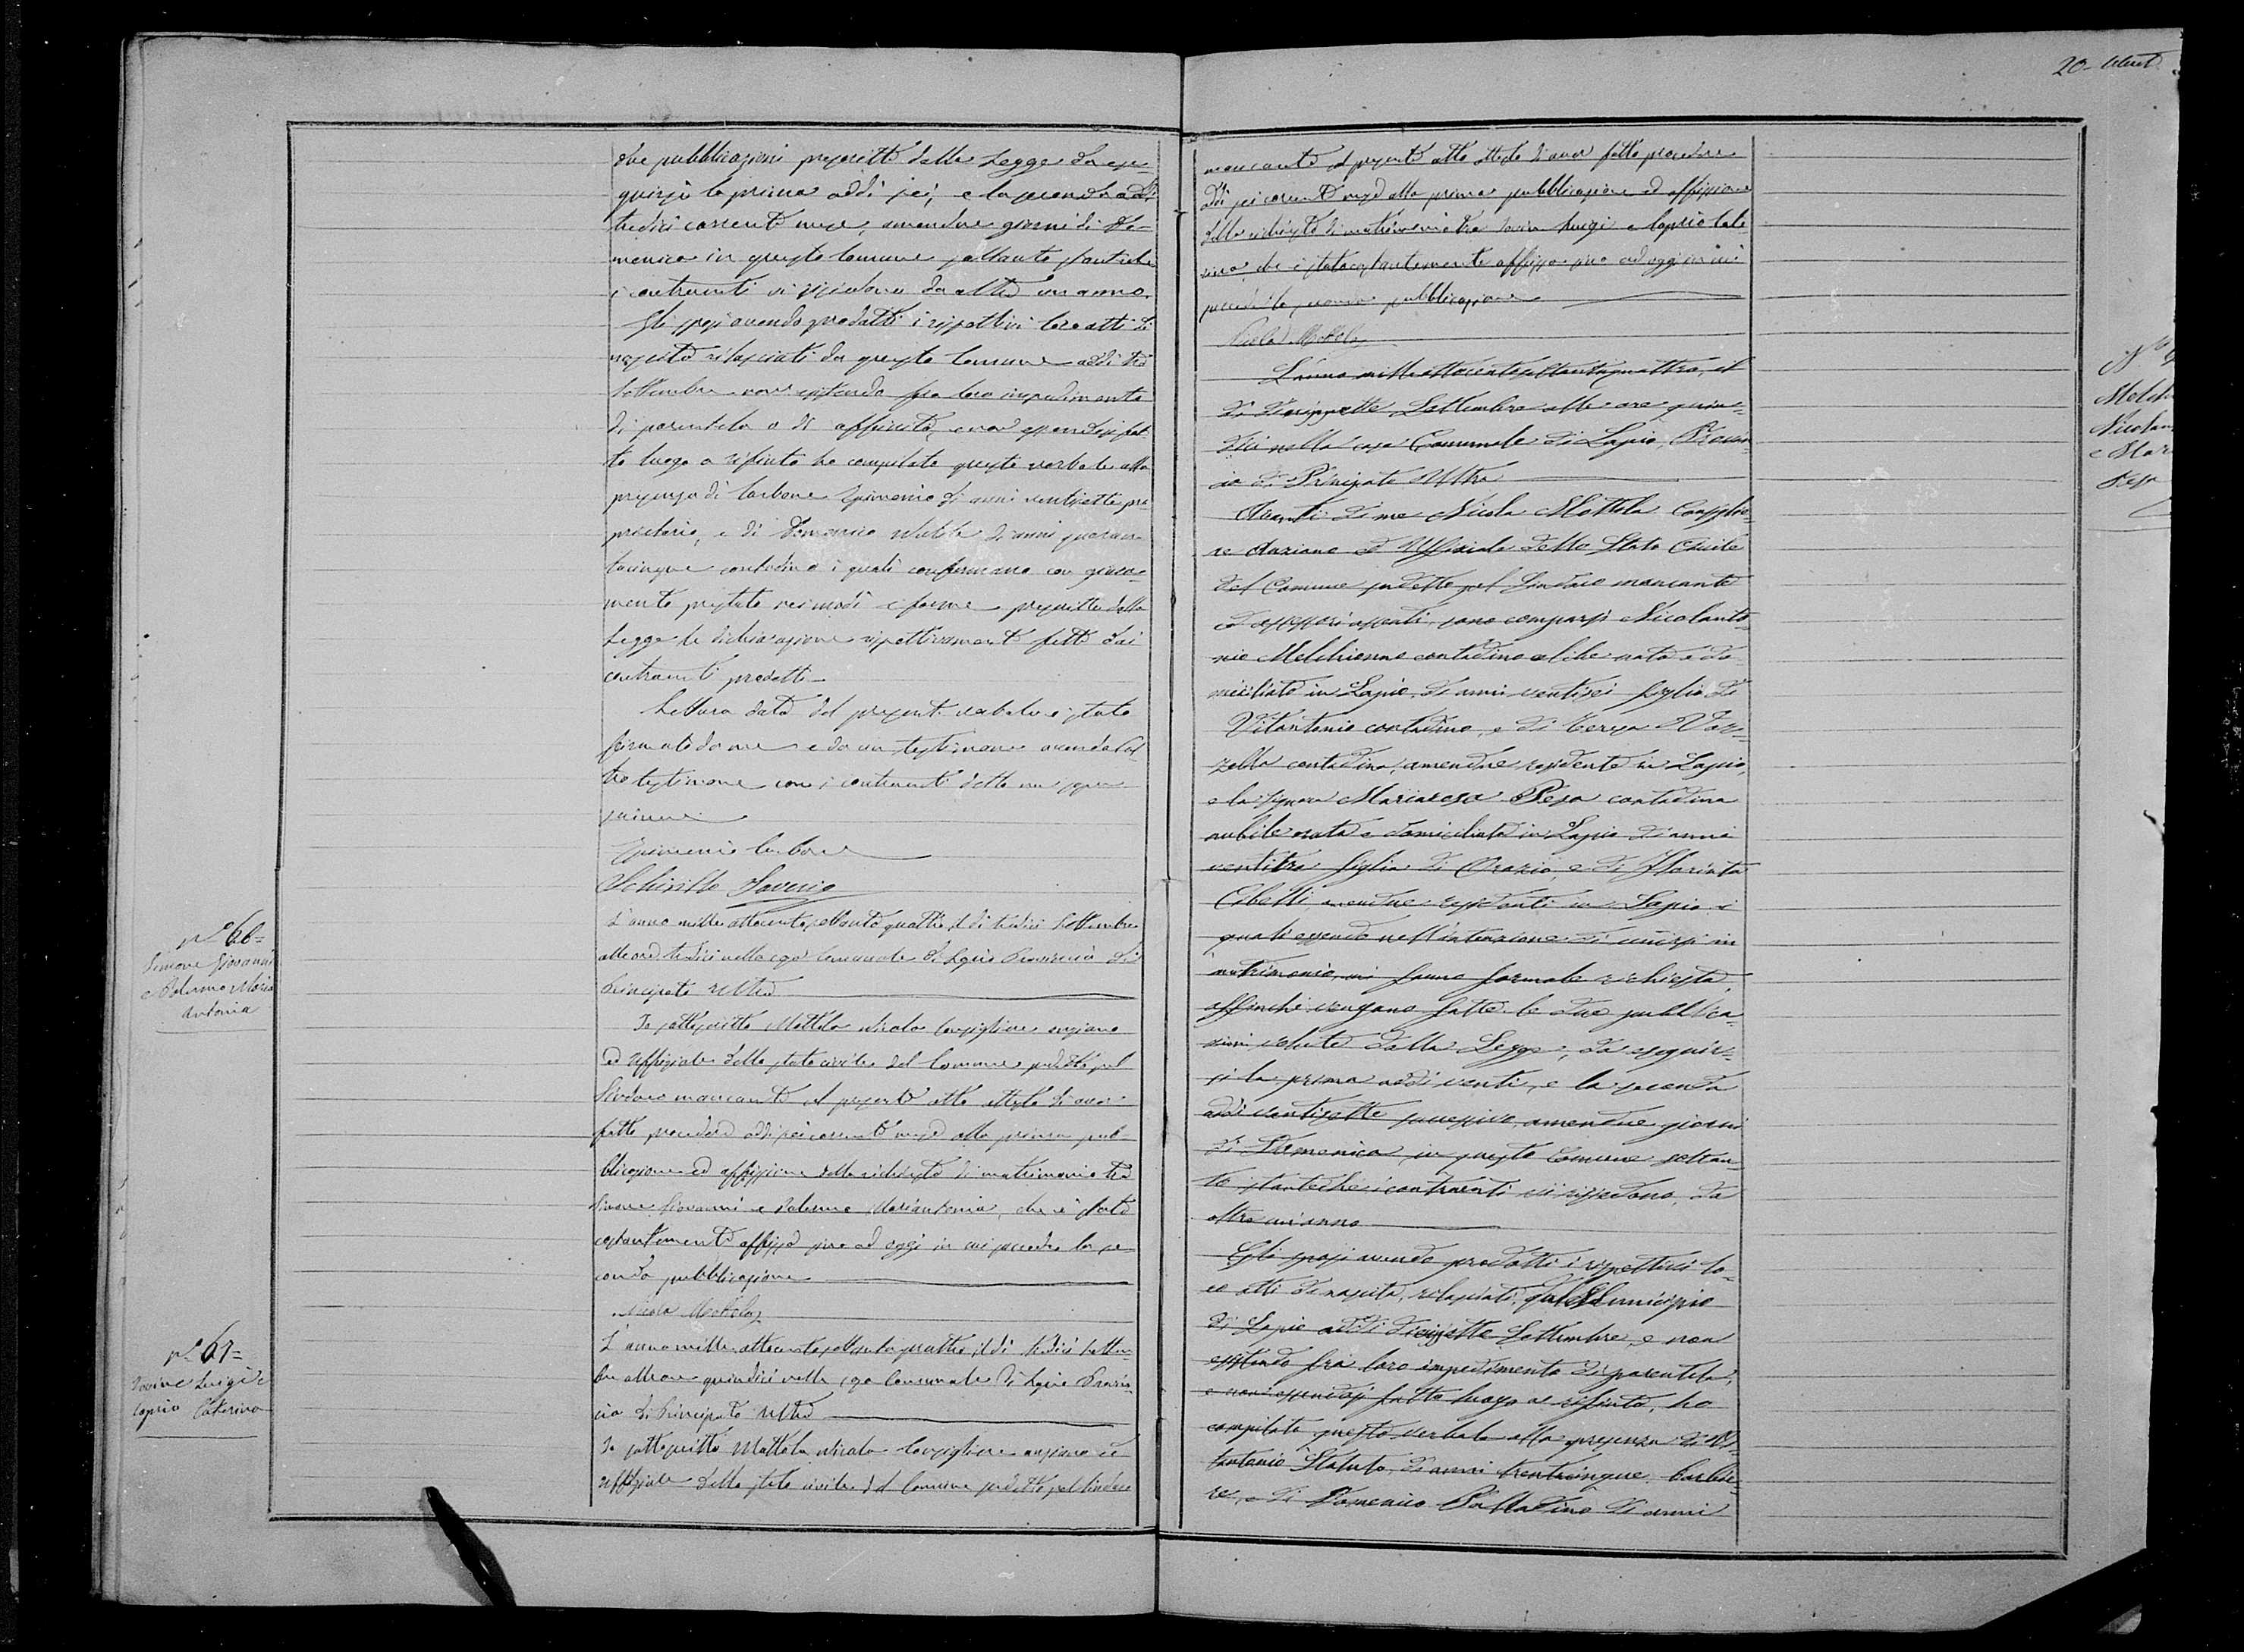 due pubblicazioni prescritte dalla Legge da ese=
guirsi la prima addì sei, e la seconda addì
tredici corrente mese, amendue giorni di Do=
menica in questo Comune soltanto stanteche
i contraenti vi risiedono da oltre un anno.
Gli sposi avendo prodotti i rispettivi loro atti di
nascita rilasciati da questo Comune addì tre
Settembre non esistendo fra loro impedimento
di parentela o di affinità, e non essendosi fat
to luogo a rifiuto ho compilato questo verbale alla
presenza di Carbone Epimenio di anni ventisette pro
prietario, e di Domenico di anni quaran
tacinque contadino i quali confermano con giura=
mento prestato nei modi e forme prescritte dalla
Legge la dichiarazione rispettivamente fatte dai
contraenti predetti
Lettura data del presente verbale è stato
firmato da me e da un testimone avendo l'al
tro testimone con i contraenti detto non saper
scrivere
Epimenio Carbone
Schirillo Saverio
N° 66=
Simone Giovanni
e Palermo Maria
Antonia
L'anno mille ottocento settanta quattro, il dì tredici Settembre
alle ore tredici nella casa Comunale di Lapio Provincia di
Principato Ultra
Io sottoscritto Mottola Nicola Consigliere anziano
ed Uffiziale dello stato civile del Comune suddetto pel
Sindaco mancante col presente atto attesto di aver
fatto procedere addì sei corrente mese alla prima pub=
blicazione ed affissione della richiesta di matrimonio tra
Simone Giovanni e Palermo Mariantonia, che è stata
costantemente affissa sino ad oggi in cui procede la se=
conda pubblicazione
Nicola Mottola
N° 67=
Iovine Luigi e
Caprio Caterina
L'anno mille ottocento settanta quattro, il dì tredici Settem=
bre alle ore quindici nella casa Comunale di Lapio Provin=
cia di Principato Ultra
Io sottoscritto Mottola Nicola Consigliere anziano ed
Uffiziale dello stato civile del Comune suddetto pel Sindaco
20
mancante col presente atto attesto di aver fatto procedere
addì sei corrente mese alla prima pubblicazione ed affissione
della richiesta di matrimonio tra Iovine Luigi e Caprio Cate
rina che è stata costantemente affissa sino ad oggi in cui
procede la seconda pubblicazione
Nicola Mottola
L'anno mille ottocento settantaquattro, il
dì diciassette Settembre alle ore quin=
dici nella casa Comunale di Lapio, Provin=
cia di Principato Ultra
Avanti di me Nicola Mottola Consiglie=
re Anziano ed Uffiziale dello Stato Civile
del Comune suddetto pel Sindaco mancante
ed assessori assenti, sono comparsi Nicolanto=
nio Melchionno contadino celibe nato e do
miciliato in Lapio, di anni ventisei figlio di
Vitantonio contadino, e di Teresa
zella contadina, amendue residente in Lapio,
e la signora Mariarosa Pesa contadina
nubile nata e domiciliata in Lapio di anni
ventitre figlia di Orazio, e di Mariarta
Cibelli amendue residenti in Lapio, i
quali essendo nell'intenzione di unirsi in
matrimonio, mi fanno formale richiesta,
affinchè vengano fatte le due pubblica=
zioni volute dalla Legge, da eseguir=
si la prima addì venti, e la seconda
addì ventisette successivo, amendue giorni
di Domenica in questo Comune soltan=
to stanteche i contraenti vi risiedono, da
oltre un'anno
Gli sposi avendo prodotti i rispettivi lo=
ro atti di nascita, rilasciati, dal Municipio
di Lapio addì diciassette Settembre, e non
esistendo fra loro impedimento di parentela,
e non essendosi fatto luogo a rifiuto, ho
compilato questo verbale alla presenza di Vi=
tantonio Statuto, di anni trentacinque barbie=
re, e di Domenico Palladino di anni
N°
Melch
Nicolan
e Mar
Pesa